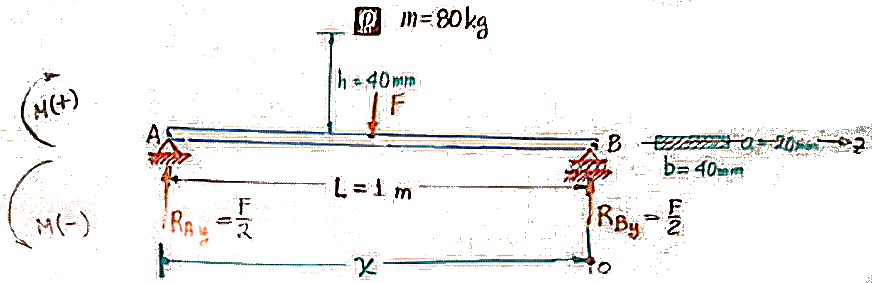 m = 80kg
h = 40mm
F
M(+)
A
B
a = 20mm
z
b = 40mm
L = 1 m
M(-)
R_Ay = F/2
R_By = F/2
x
O